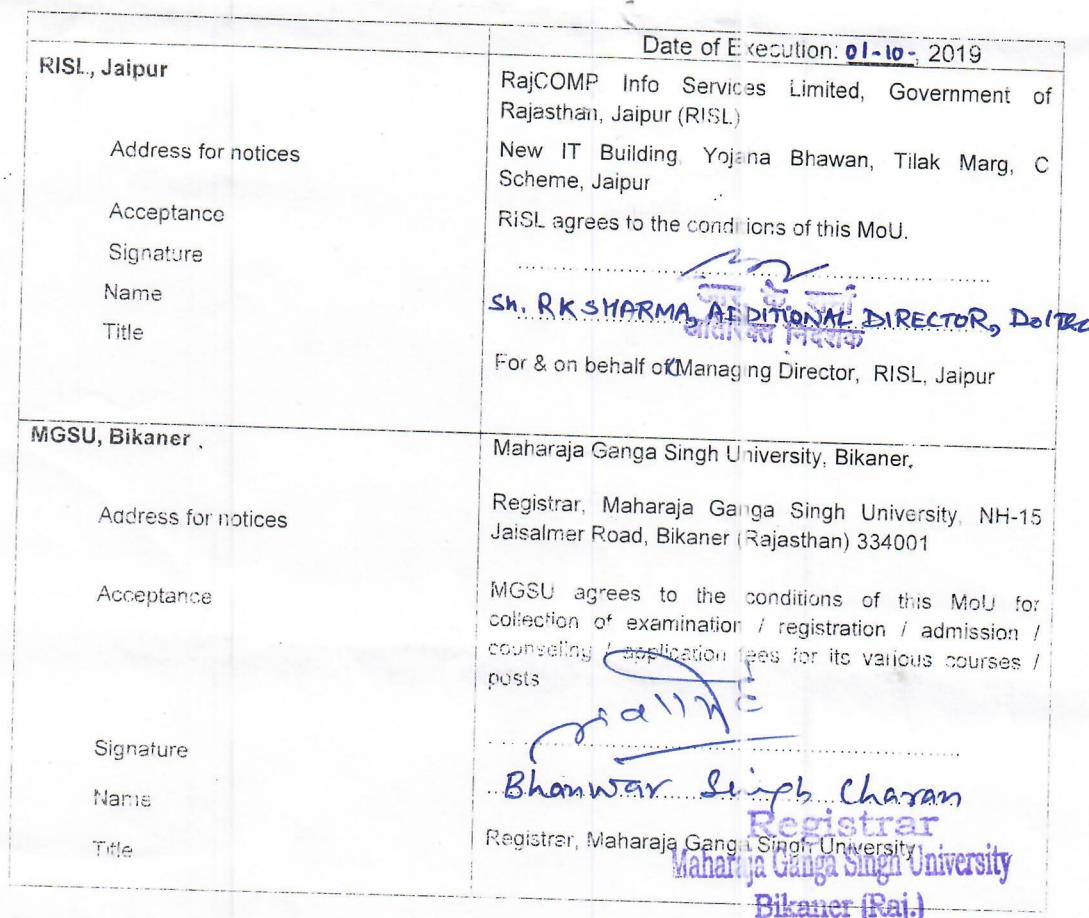 Date of Execution: 01-10-, 2019
RISL, Jaipur
RajCOMP Info Services Limited, Government of
Rajasthan, Jaipur (RISL)
Address for notices
New IT Building, Yojana Bhawan, Tilak Marg, C
Scheme, Jaipur
Acceptance
RISL agrees to the conditions of this MoU.
Signature
Name
आर. के. शर्मा
Sh. RK SHARMA, ADDITIONAL DIRECTOR,
Title
अतिरिक्त निदेशक
For & on behalf of Managing Director, RISL, Jaipur
MGSU, Bikaner
Maharaja Ganga Singh University, Bikaner.
Address for notices
Registrar, Maharaja Ganga Singh University, NH-15
Jaisalmer Road, Bikaner (Rajasthan) 334001
Acceptance
MGSU agrees to the conditions of this MoU for
collection of examination / registration / admission /
counseling / application fees for its various courses /
posts
Signature
Name
Bhanwar Singh Charan
Title
Registrar, Maharaja Ganga Singh University
Registrar
Maharaja Ganga Singh University
Bikaner (Raj.)